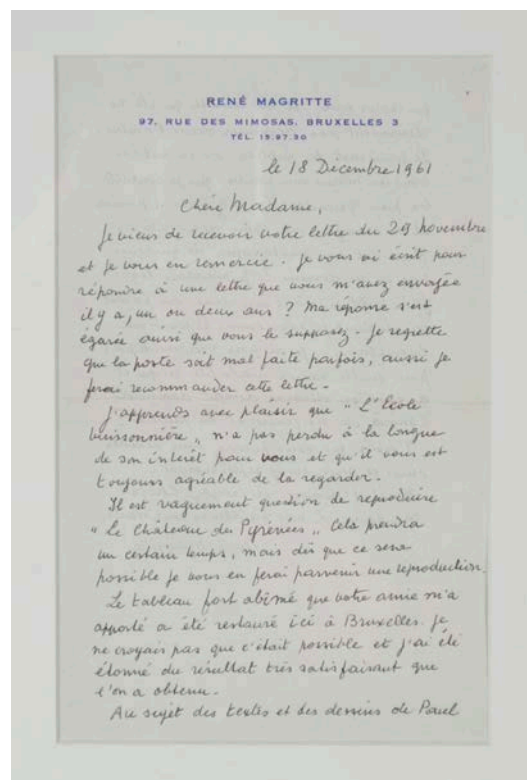 RENÉ MAGRITTE
97, RUE DES MIMOSAS, BRUXELLES 3
TÉL. 15.97.30
le 18 Décembre 1961
Chère Madame,
Je viens de recevoir votre lettre du 29 novembre
et je vous en remercie. Je vous ai écrit pour
répondre à une lettre que vous m'avez envoyée
il y a, un ou deux ans ? Ma réponse s'est
égarée ainsi que vous le supposez. Je regrette
que la poste soit mal faite parfois, aussi je
ferai recommander cette lettre.
J'apprends avec plaisir que "L'Ecole
buissonnière" n'a pas perdu à la longue
de son intérêt pour vous et qu'il vous est
toujours agréable de la regarder.
Il est vaguement question de reproduire
"Le Château des Pyrénées". Cela prendra
un certain temps, mais dès que ce sera
possible je vous en ferai parvenir une reproduction.
Le tableau fort abîmé que votre amie m'a
apporté a été restauré ici à Bruxelles. Je
ne croyais pas que c'était possible et j'ai été
étonné du résultat très satisfaisant que
l'on a obtenu.
Au sujet des textes et des dessins de Paul